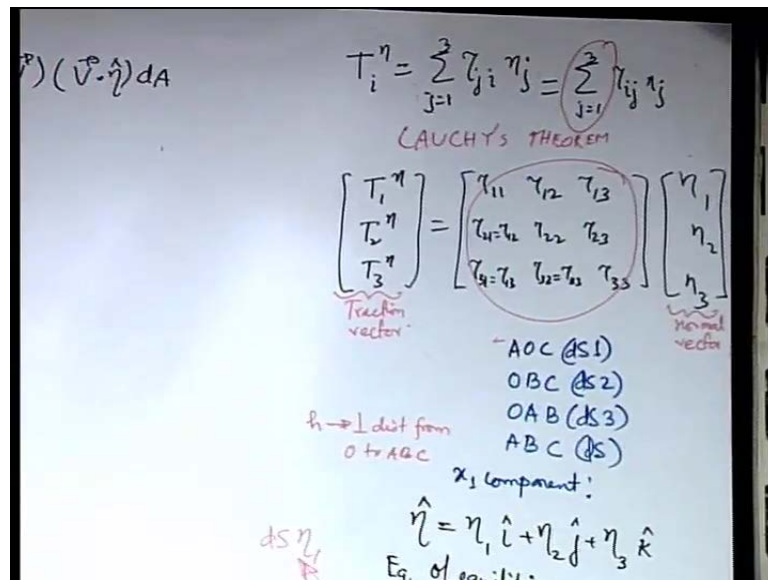 ) (V⃗·η̂) dA
T_i^η = Σ_{j=1}^{3} τ_{ji} η_j = Σ_{j=1}^{3} τ_{ij} η_j
CAUCHY's THEOREM
[T_1^η] = [τ_11 τ_12 τ_13] [η_1]
[T_2^η] [τ_21=τ_12 τ_22 τ_23] [η_2]
[T_3^η] [τ_31=τ_13 τ_32=τ_23 τ_33] [η_3]
Traction
vector
normal
vector
AOC (dS1)
OBC (dS2)
OAB (dS3)
ABC (dS)
h → ⊥ dist from
O to ABC
x_1 component:
η̂ = η_1 î + η_2 ĵ + η_3 k̂
dS η_1
Eq. of